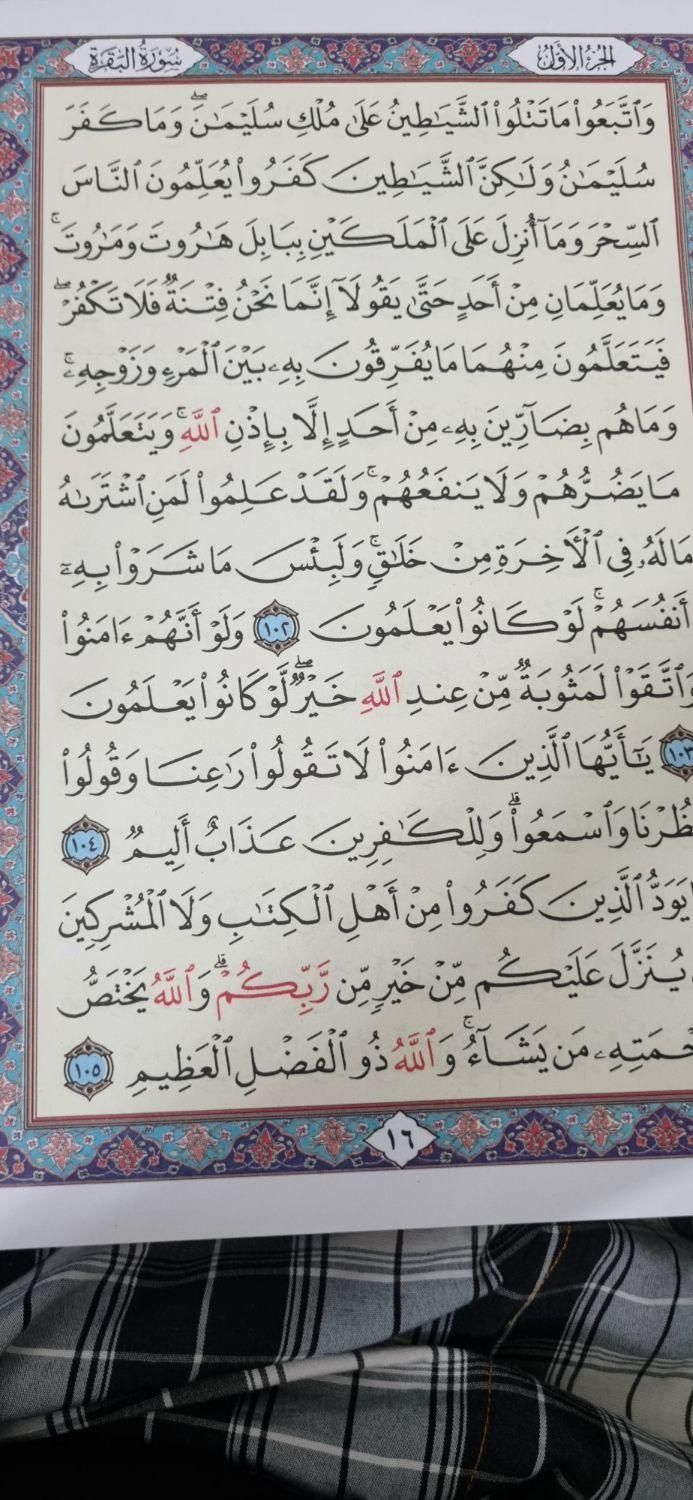 الجُزْءُ الأَوَّلُ
سُورَةُ البَقَرَةِ
وَٱتَّبَعُوا۟ مَا تَتْلُوا۟ ٱلشَّيَـٰطِينُ عَلَىٰ مُلْكِ سُلَيْمَـٰنَ ۖ وَمَا كَفَرَ
سُلَيْمَـٰنُ وَلَـٰكِنَّ ٱلشَّيَـٰطِينَ كَفَرُوا۟ يُعَلِّمُونَ ٱلنَّاسَ
ٱلسِّحْرَ وَمَآ أُنزِلَ عَلَى ٱلْمَلَكَيْنِ بِبَابِلَ هَـٰرُوتَ وَمَـٰرُوتَ ۚ
وَمَا يُعَلِّمَانِ مِنْ أَحَدٍ حَتَّىٰ يَقُولَآ إِنَّمَا نَحْنُ فِتْنَةٌ فَلَا تَكْفُرْ ۖ
فَيَتَعَلَّمُونَ مِنْهُمَا مَا يُفَرِّقُونَ بِهِۦ بَيْنَ ٱلْمَرْءِ وَزَوْجِهِۦ ۚ
وَمَا هُم بِضَآرِّينَ بِهِۦ مِنْ أَحَدٍ إِلَّا بِإِذْنِ ٱللَّهِ ۚ وَيَتَعَلَّمُونَ
مَا يَضُرُّهُمْ وَلَا يَنفَعُهُمْ ۚ وَلَقَدْ عَلِمُوا۟ لَمَنِ ٱشْتَرَىٰهُ
مَا لَهُۥ فِى ٱلْـَٔاخِرَةِ مِنْ خَلَـٰقٍ ۚ وَلَبِئْسَ مَا شَرَوْا۟ بِهِۦٓ
أَنفُسَهُمْ ۚ لَوْ كَانُوا۟ يَعْلَمُونَ ١٠٢ وَلَوْ أَنَّهُمْ ءَامَنُوا۟
وَٱتَّقَوْا۟ لَمَثُوبَةٌ مِّنْ عِندِ ٱللَّهِ خَيْرٌ ۖ لَّوْ كَانُوا۟ يَعْلَمُونَ
١٠٣ يَـٰٓأَيُّهَا ٱلَّذِينَ ءَامَنُوا۟ لَا تَقُولُوا۟ رَٰعِنَا وَقُولُوا۟
ظُرْنَا وَٱسْمَعُوا۟ ۗ وَلِلْكَـٰفِرِينَ عَذَابٌ أَلِيمٌ ١٠٤
يَوَدُّ ٱلَّذِينَ كَفَرُوا۟ مِنْ أَهْلِ ٱلْكِتَـٰبِ وَلَا ٱلْمُشْرِكِينَ
يُنَزَّلَ عَلَيْكُم مِّنْ خَيْرٍ مِّن رَّبِّكُمْ ۗ وَٱللَّهُ يَخْتَصُّ
حْمَتِهِۦ مَن يَشَآءُ ۚ وَٱللَّهُ ذُو ٱلْفَضْلِ ٱلْعَظِيمِ ١٠٥
١٦